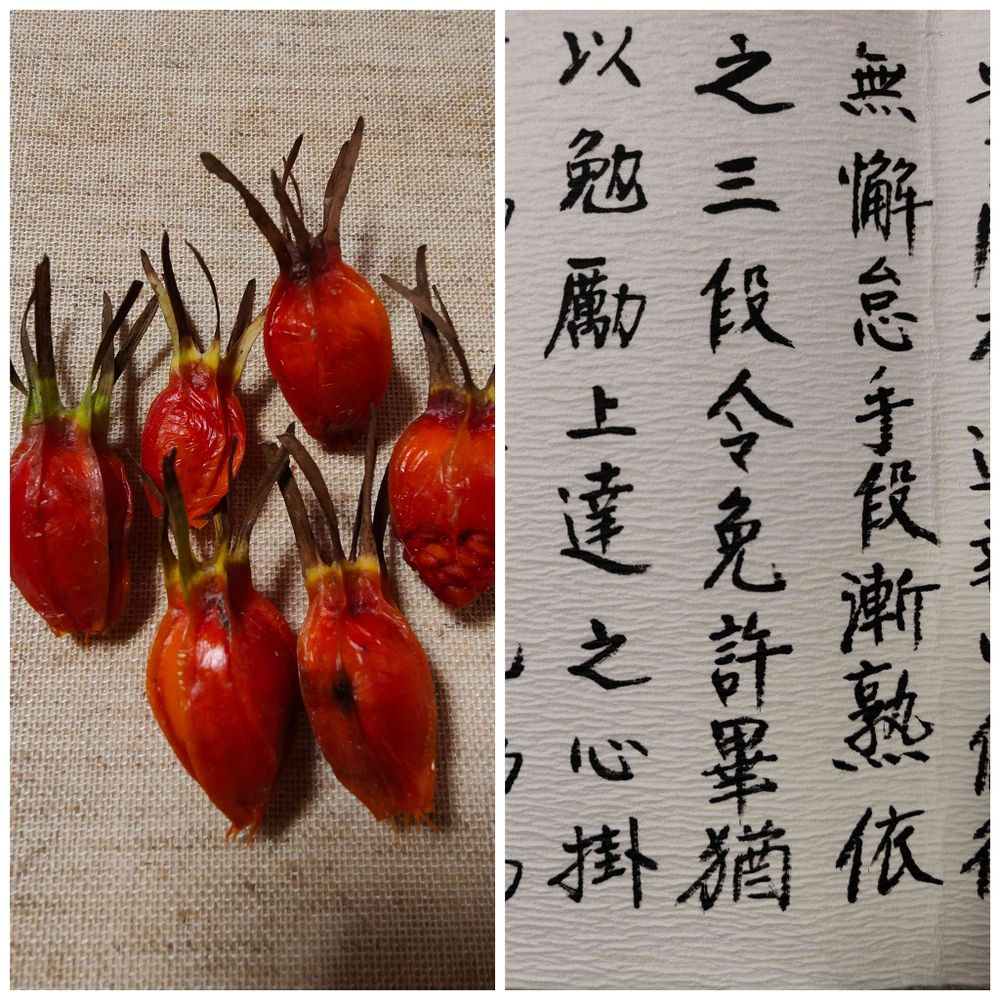 無懈怠手段漸熟依
之三段令免許畢猶
以勉勵上達之心掛